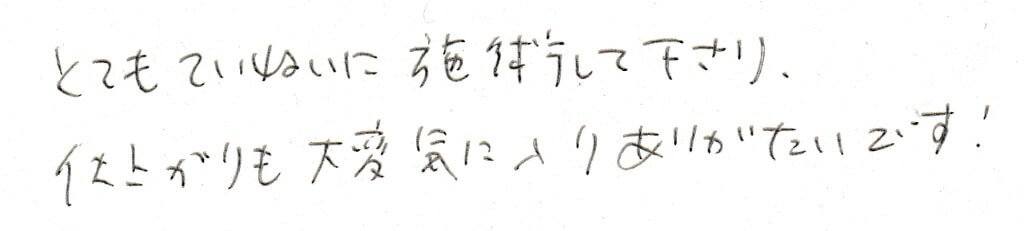 とてもていねいに施術して下さり、
仕上がりも大変気に入りありがたいです!